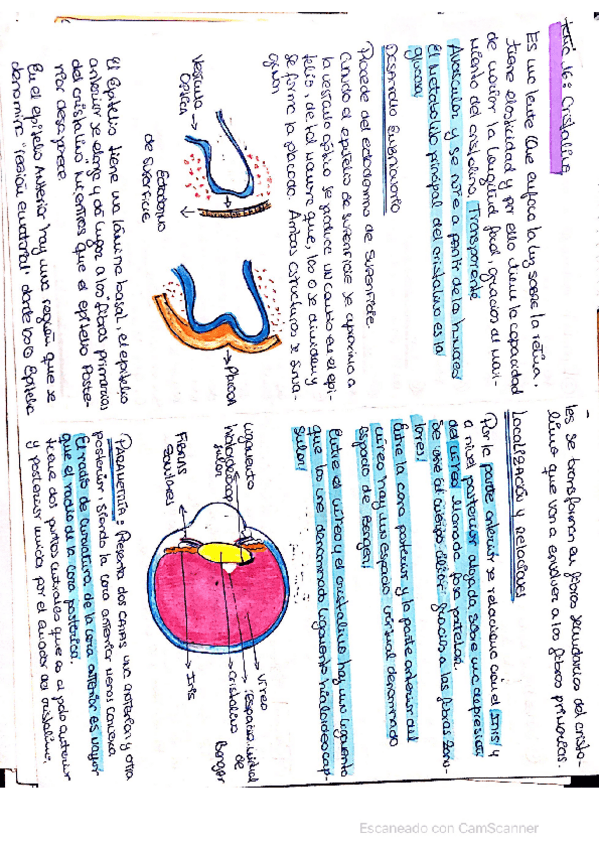 Tema 16: Cristalino
Es una lente que enfoca la luz sobre la retina,
tiene elasticidad y por ello tiene la capacidad
de variar la longitud focal gracias al movi-
miento del cristalino. Transparente
Avascular y se nutre a partir de los humores
El metabolito principal del cristalino es la
glucosa
Desarrollo Embrionario
Procede del ectodermo de superficie
Cuando el epitelio de superficie se aproxima a
la vesícula óptica se produce un cambio en el epi-
telio, de tal manera que, los o se dividen y
se forma la placoda. Ambas estructuras se inva-
ginan
Vesícula
Óptica
Ectodermo
de superficie
Placoda
El epitelio tiene una lámina basal, el epitelio
anterior se elonga y da lugar a las fibras primarias
del cristalino mientras que el epitelio poste-
rior desaparece.
En el epitelio Anterior hay una región que se
denomina "región ecuatorial" donde los o epitelia
les se transforman en fibras secundarias del crista-
lino que van a envolver a las fibras primarias.
Localización y relaciones
Por la parte anterior se relaciona con el iris y
a nivel posterior alojada sobre una depresión
del vítreo llamada fosa posterior.
Se une al cuerpo ciliar gracias a las fibras zonu-
lares
Entre la cara posterior y la parte anterior del
vítreo hay un espacio virtual denominado
espacio de Berger
Entre el vítreo y el cristalino hay un ligamento
que los une denominado ligamento hialoideocap-
sular
Ligamento
hialoideocap
sular
Fibras
zonulares
Vítreo
Espacio virtual
de
Berger
Cristalino
Iris
PARAMETRÍA: Presenta dos caras una anterior y otra
posterior siendo la cara anterior menos convexa
El radio de curvatura de la cara anterior es mayor
que el radio de la cara posterior.
Tiene dos puntos centrales que es el polo anterior
y posterior unidos por el ecuador del cristalino,
Escaneado con CamScanner